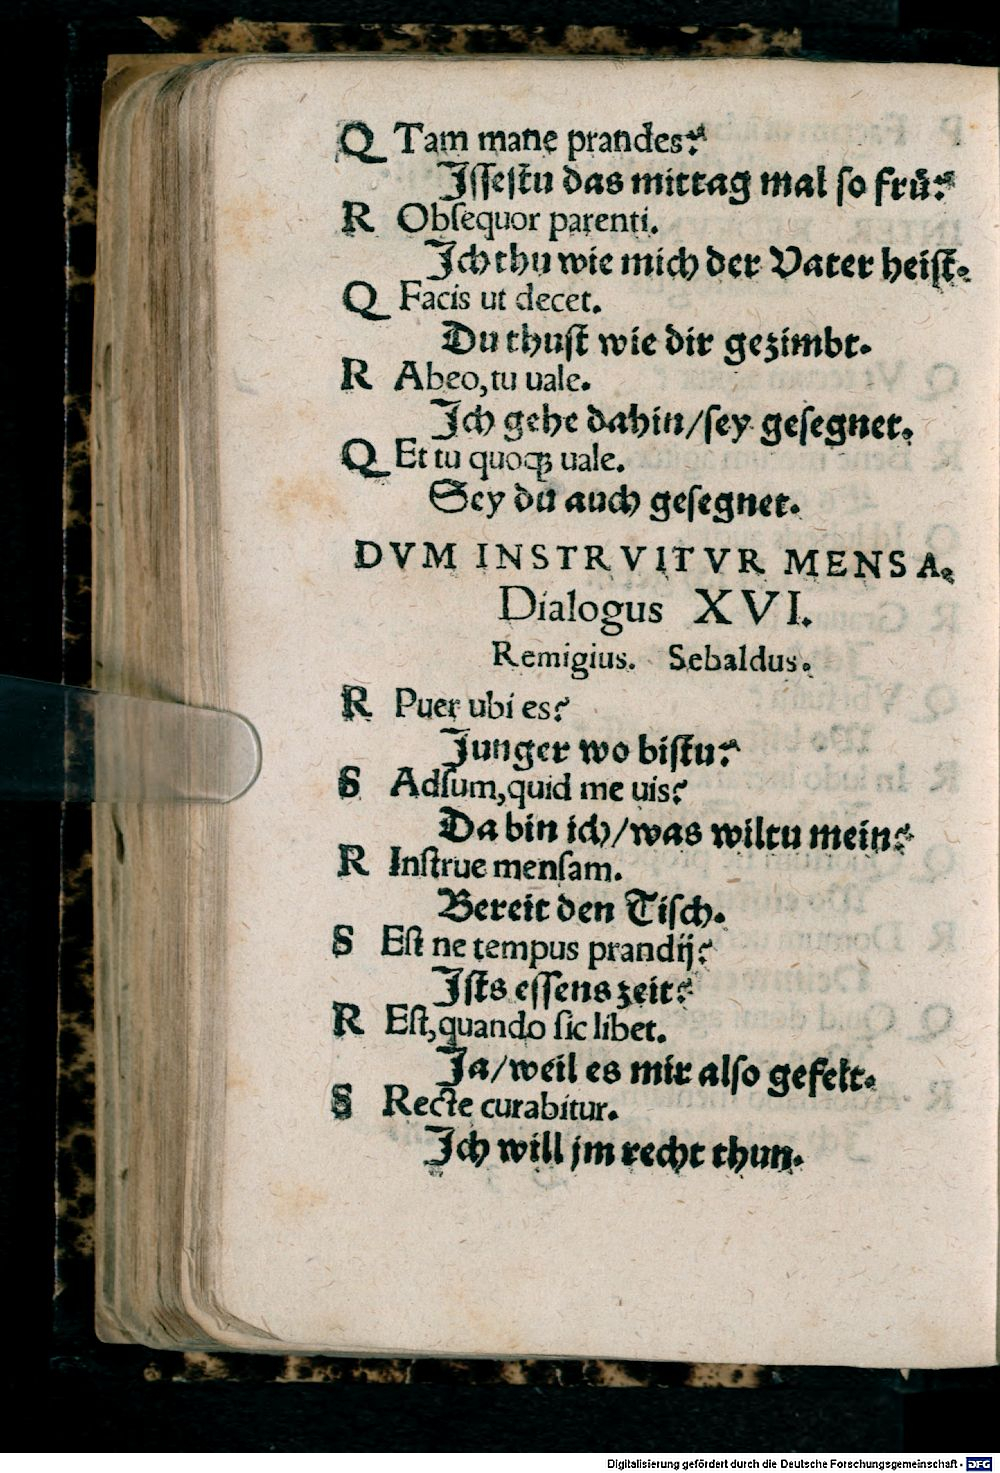 Q Tam mane prandes?
Jſſeſtu das mittag mal ſo frů?
R Obſequor parenti.
Jch thu wie mich der Vater heiſt.
Q Facis ut decet.
Du thuſt wie dir gezimbt.
R Abeo, tu uale.
Jch gehe dahin/ſey geſegnet.
Q Et tu quoqꝫ uale.
Sey du auch geſegnet.
DVM INSTRVITVR MENSA.
Dialogus XVI.
Remigius. Sebaldus.
R Puer ubi es?
Junger wo biſtu?
S Adſum, quid me uis?
Da bin ich/was wiltu mein?
R Inſtrue menſam.
Bereit den Tiſch.
S Eſt ne tempus prandij?
Jſts eſſens zeit?
R Eſt, quando ſic libet.
Ja/weil es mir alſo gefelt.
S Recte curabitur.
Jch will jm recht thun.
Digitalisierung gefördert durch die Deutsche Forschungsgemeinschaft - DFG